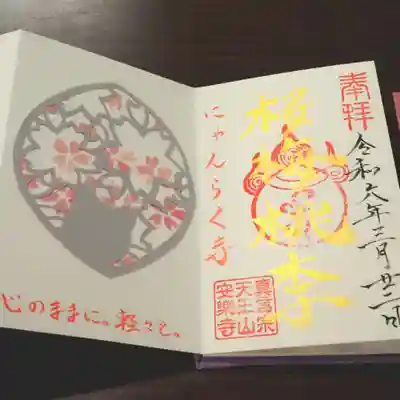 奉拝
令和六年三月廿二日
桜梅桃李
真言宗
天王山
安樂寺
にゃんらく寺
心のままに。軽々と。